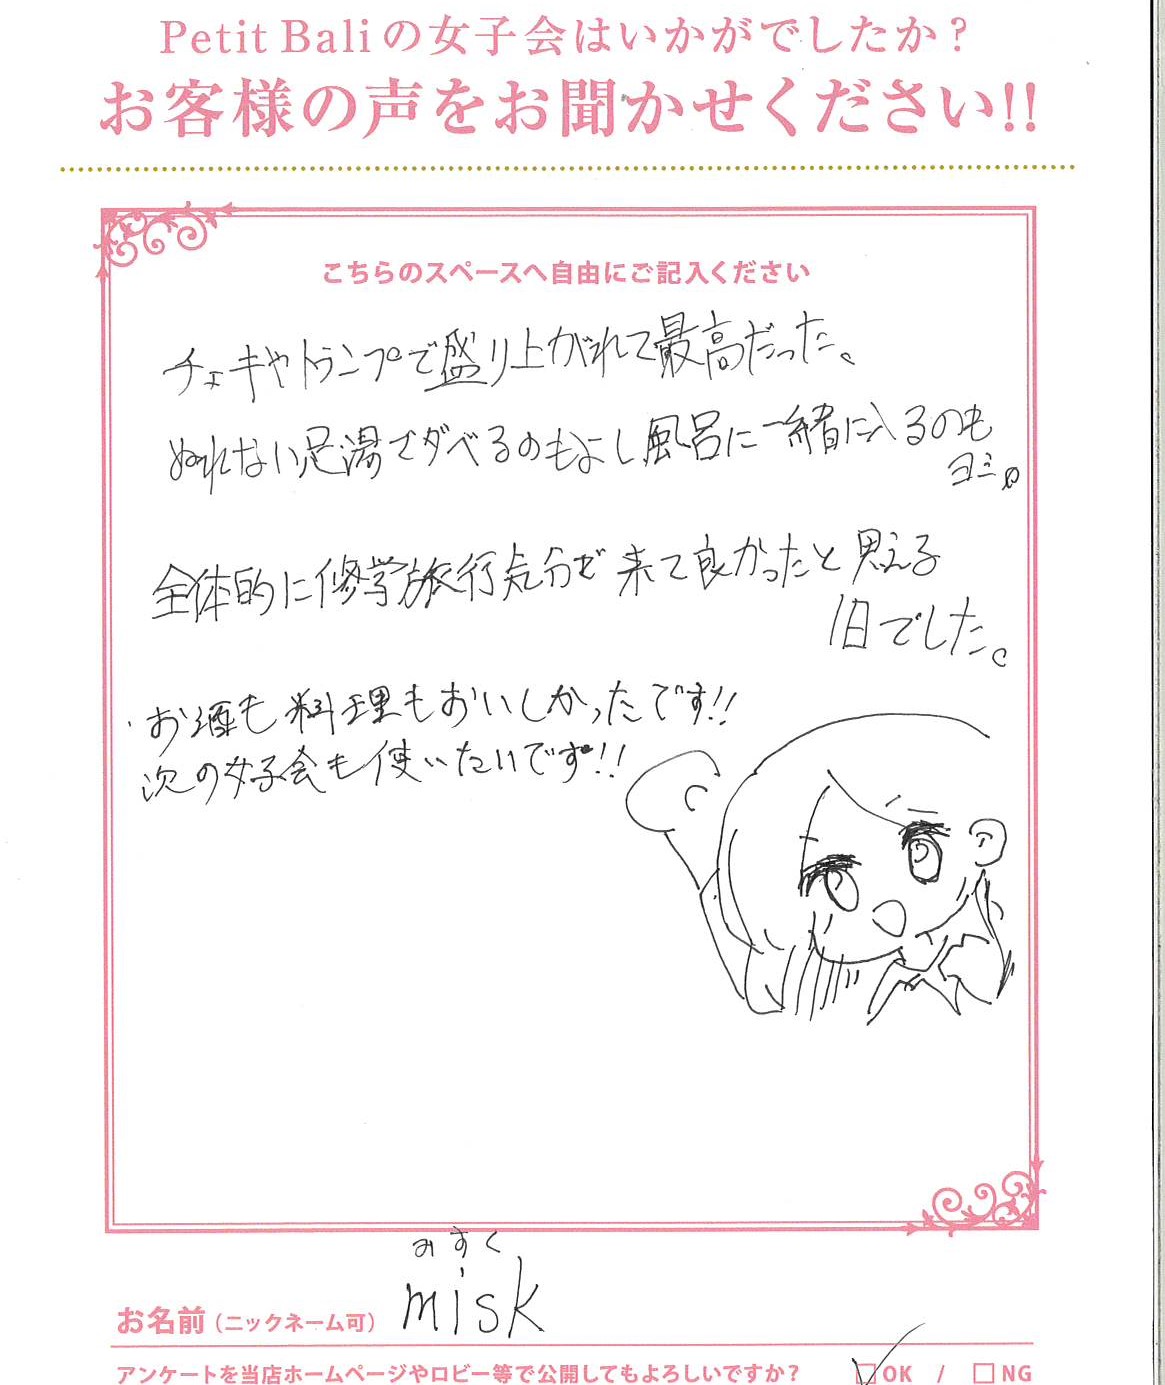 Petit Baliの女子会はいかがでしたか?
お客様の声をお聞かせください!!
こちらのスペースへ自由にご記入ください
チェキやトランプで盛り上がれて最高だった。
ぬれない足湯でダベるのもよし風呂に一緒に入るのも
ヨシ。
全体的に修学旅行気分で来て良かったと思える
1日でした。
お酒も料理もおいしかったです!!
次の女子会も使いたいです!!
みすく
misk
お名前(ニックネーム可)
アンケートを当店ホームページやロビー等で公開してもよろしいですか? ☑OK / □NG